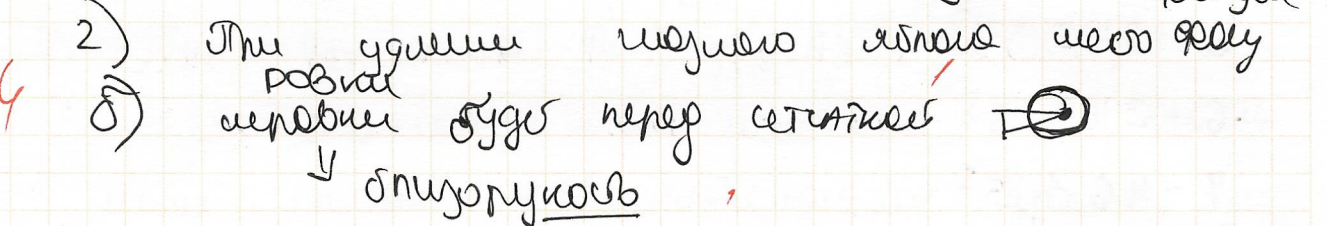 2) При удлинении глазного яблока место фоку
ровки
б) меровки будет перед сетчаткой
близорукость